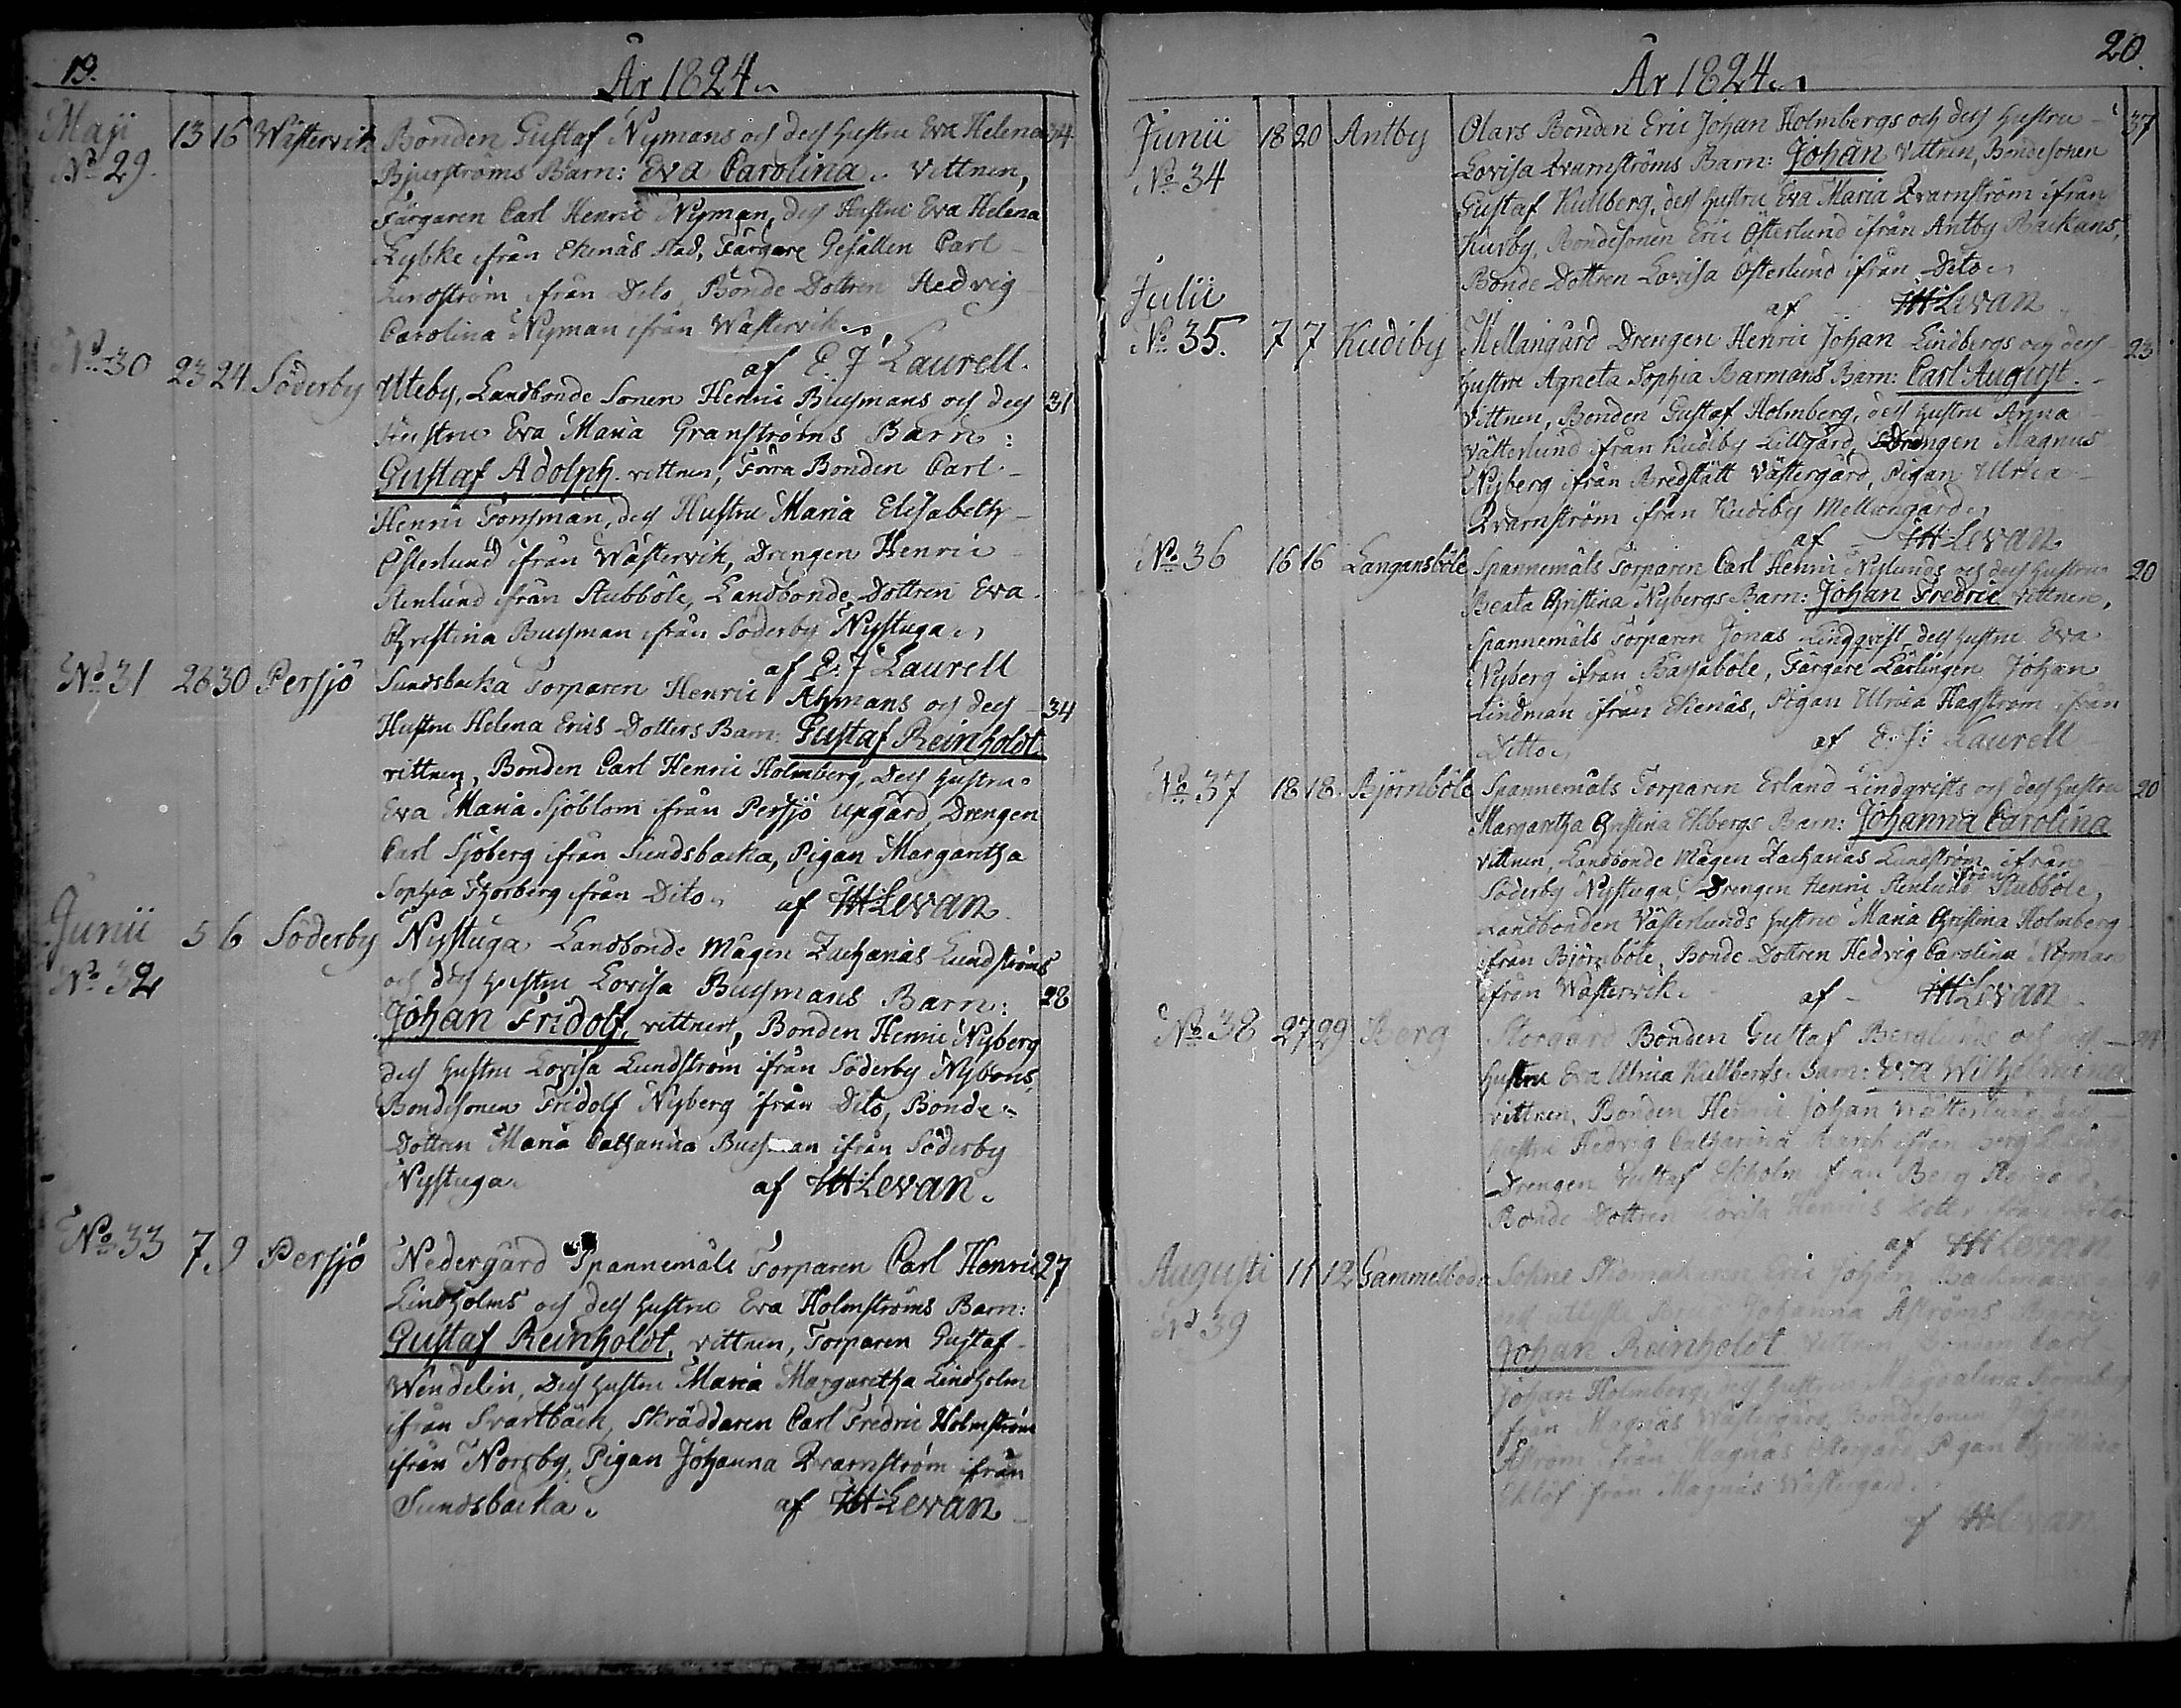 19.
År 1824.
Maji 13 16 Wästervik Bonden Gustaf Nymans och dess hustru Eva Helena 34
No 29. Bjurströms Barn: Eva Carolina. Vittnen,
Färgaren Carl Henric Nyman, dess Hustru Eva Helena
Lybke ifrån Ekenäs stad, Färgare Gesällen Carl
Lindström ifrån Dito, Bonde Dottren Hedvig
Carolina Nyman ifrån Wästervik.
af E. J Laurell.
No 30 23 24 Söderby Uteby, Landbonde Sonen Henric Bussmans och dess 31
Hustru Eva Maria Granströms Barn:
Gustaf Adolph. vittnen, Förra Bonden Carl
Henric Forssman, dess Hustru Maria Elisabeth
Österlund ifrån Wästervik, Drengen Henric
Stenlund ifrån Stubböle, Landbonde Dottren Eva
Christina Bussman ifrån Söderby Nystuga.
af E. J Laurell
No 31 28 30 Persjö Sundsbacka Torparen Henric Åhmans och dess 34
Hustru Helena Erics Dotters Barn: Gustaf Reinholdt
vittnen, Bonden Carl Henric Holmberg, dess hustru
Eva Maria Sjöblom ifrån Persjö Upgård, Drengen
Carl Sjöberg ifrån Sundsbacka, Pigan Margaretha
Sophia Thorberg ifrån Dito. af Levan
Junii 5 6 Söderby Nystuga Landbonde Mågen Zacharias Lundströms
No 32 och dess hustru Lovisa Bussmans Barn: 28
Johan Fridolf, vittnen, Bonden Henric Nyberg
dess hustru Lovisa Lundström ifrån Söderby Nybons,
Bondesonen Fridolf Nyberg ifrån Dito, Bonde
Dottren Maria Catharina Bussman ifrån Söderby
Nystuga. af Levan.
No 33 7 9 Persjö Nedergård Spannemåls Torparen Carl Henric 27
Lindholms och dess hustru Eva Holmströms Barn:
Gustaf Reinholdt, vittnen, Torparen Gustaf
Wendelin, dess hustru Maria Margaretha Lindholm
ifrån Svartbäck, Skräddaren Carl Fredric Holmström
ifrån Norrby, Pigan Johanna Qvarnström ifrån
Sundsbacka. af Levan
20.
År 1824.
Junii 18 20 Antby Olars Bonden Eric Johan Holmbergs och dess hustru 37
No 34 Lovisa Qvarnströms Barn: Johan Vittnen, Bondesonen
Gustaf Kullberg, dess hustru Eva Maria Qvarnström ifrån
Kusby, Bondesonen Eric Österlund ifrån Antby Backans,
Bonde Dottren Lovisa Österlund ifrån Dito.
af Levan
Julii
No 35. 7 7 Kudiby Mellangård Drengen Henric Johan Lindbergs och dess 23
hustru Agneta Sophia Barmans Barn: Carl August.
Vittnen, Bonden Gustaf Holmberg, dess hustru Anna
Vätterlund ifrån Kudiby Lillgård, Drengen Magnus
Nyberg ifrån Bredslätt Västergård, Pigan Ulrica
Qvarnström ifrån Kudiby Mellangård.
af Levan
No 36 16 16 Langansböle Spannemåls Torparen Carl Henric Nylunds och dess hustru 20
Beata Christina Nybergs Barn: Johan Fredric vittnen,
Spannemåls Torparen Jonas Lindqvist dess hustru Eva
Nyberg ifrån Bassaböle, Färgare Lärlingen Johan
Lindman ifrån Ekenäs, Pigan Ulrica Hagström ifrån
Ditto. af E. J: Laurell
No 37 18 18 Björnböle Spannemåls Torparen Erland Lindqvists och dess hustru 20
Margaretha Christina Ekbergs Barn: Johanna Carolina
vittnen, Landbonde Mågen Zacharias Lundström ifrån
Söderby Nystuga, Drengen Henric Stenlund ifrån Stubböle,
Landbonden Västerlunds hustru Maria Christina Holmberg
ifrån Björnböle, Bonde Dottren Hedvig Carolina Nyman
ifrån Wästervik. af Levan
No 38 27 29 Berg Storgård Bonden Gustaf Berglunds och dess
hustru Eva Ulrica Kullbergs Barn: Eva Wilhelmina
vittnen, Bonden Henric Johan Wätterlund, dess
hustru Hedvig Catharina ifrån Berg
Drengen Gustaf Ekholm ifrån Berg Storgård,
Bonde Dottren Lovisa Henrics Dotter ifrån Dito
af Levan
Augusti 11 12 Gammelboda Sohne Skomakaren Eric Johan
No 39 Johanna Åströms Barn
Johan Reinholdt Vittnen Bonden Carl
Johan Holmberg, dess hustru Magdalena
ifrån Magnäs Wästergård, Bondesonen Johan
Åström ifrån Magnäs Östergård, Pigan Christina
Eklöf ifrån Magnäs Wästergård.
af Levan